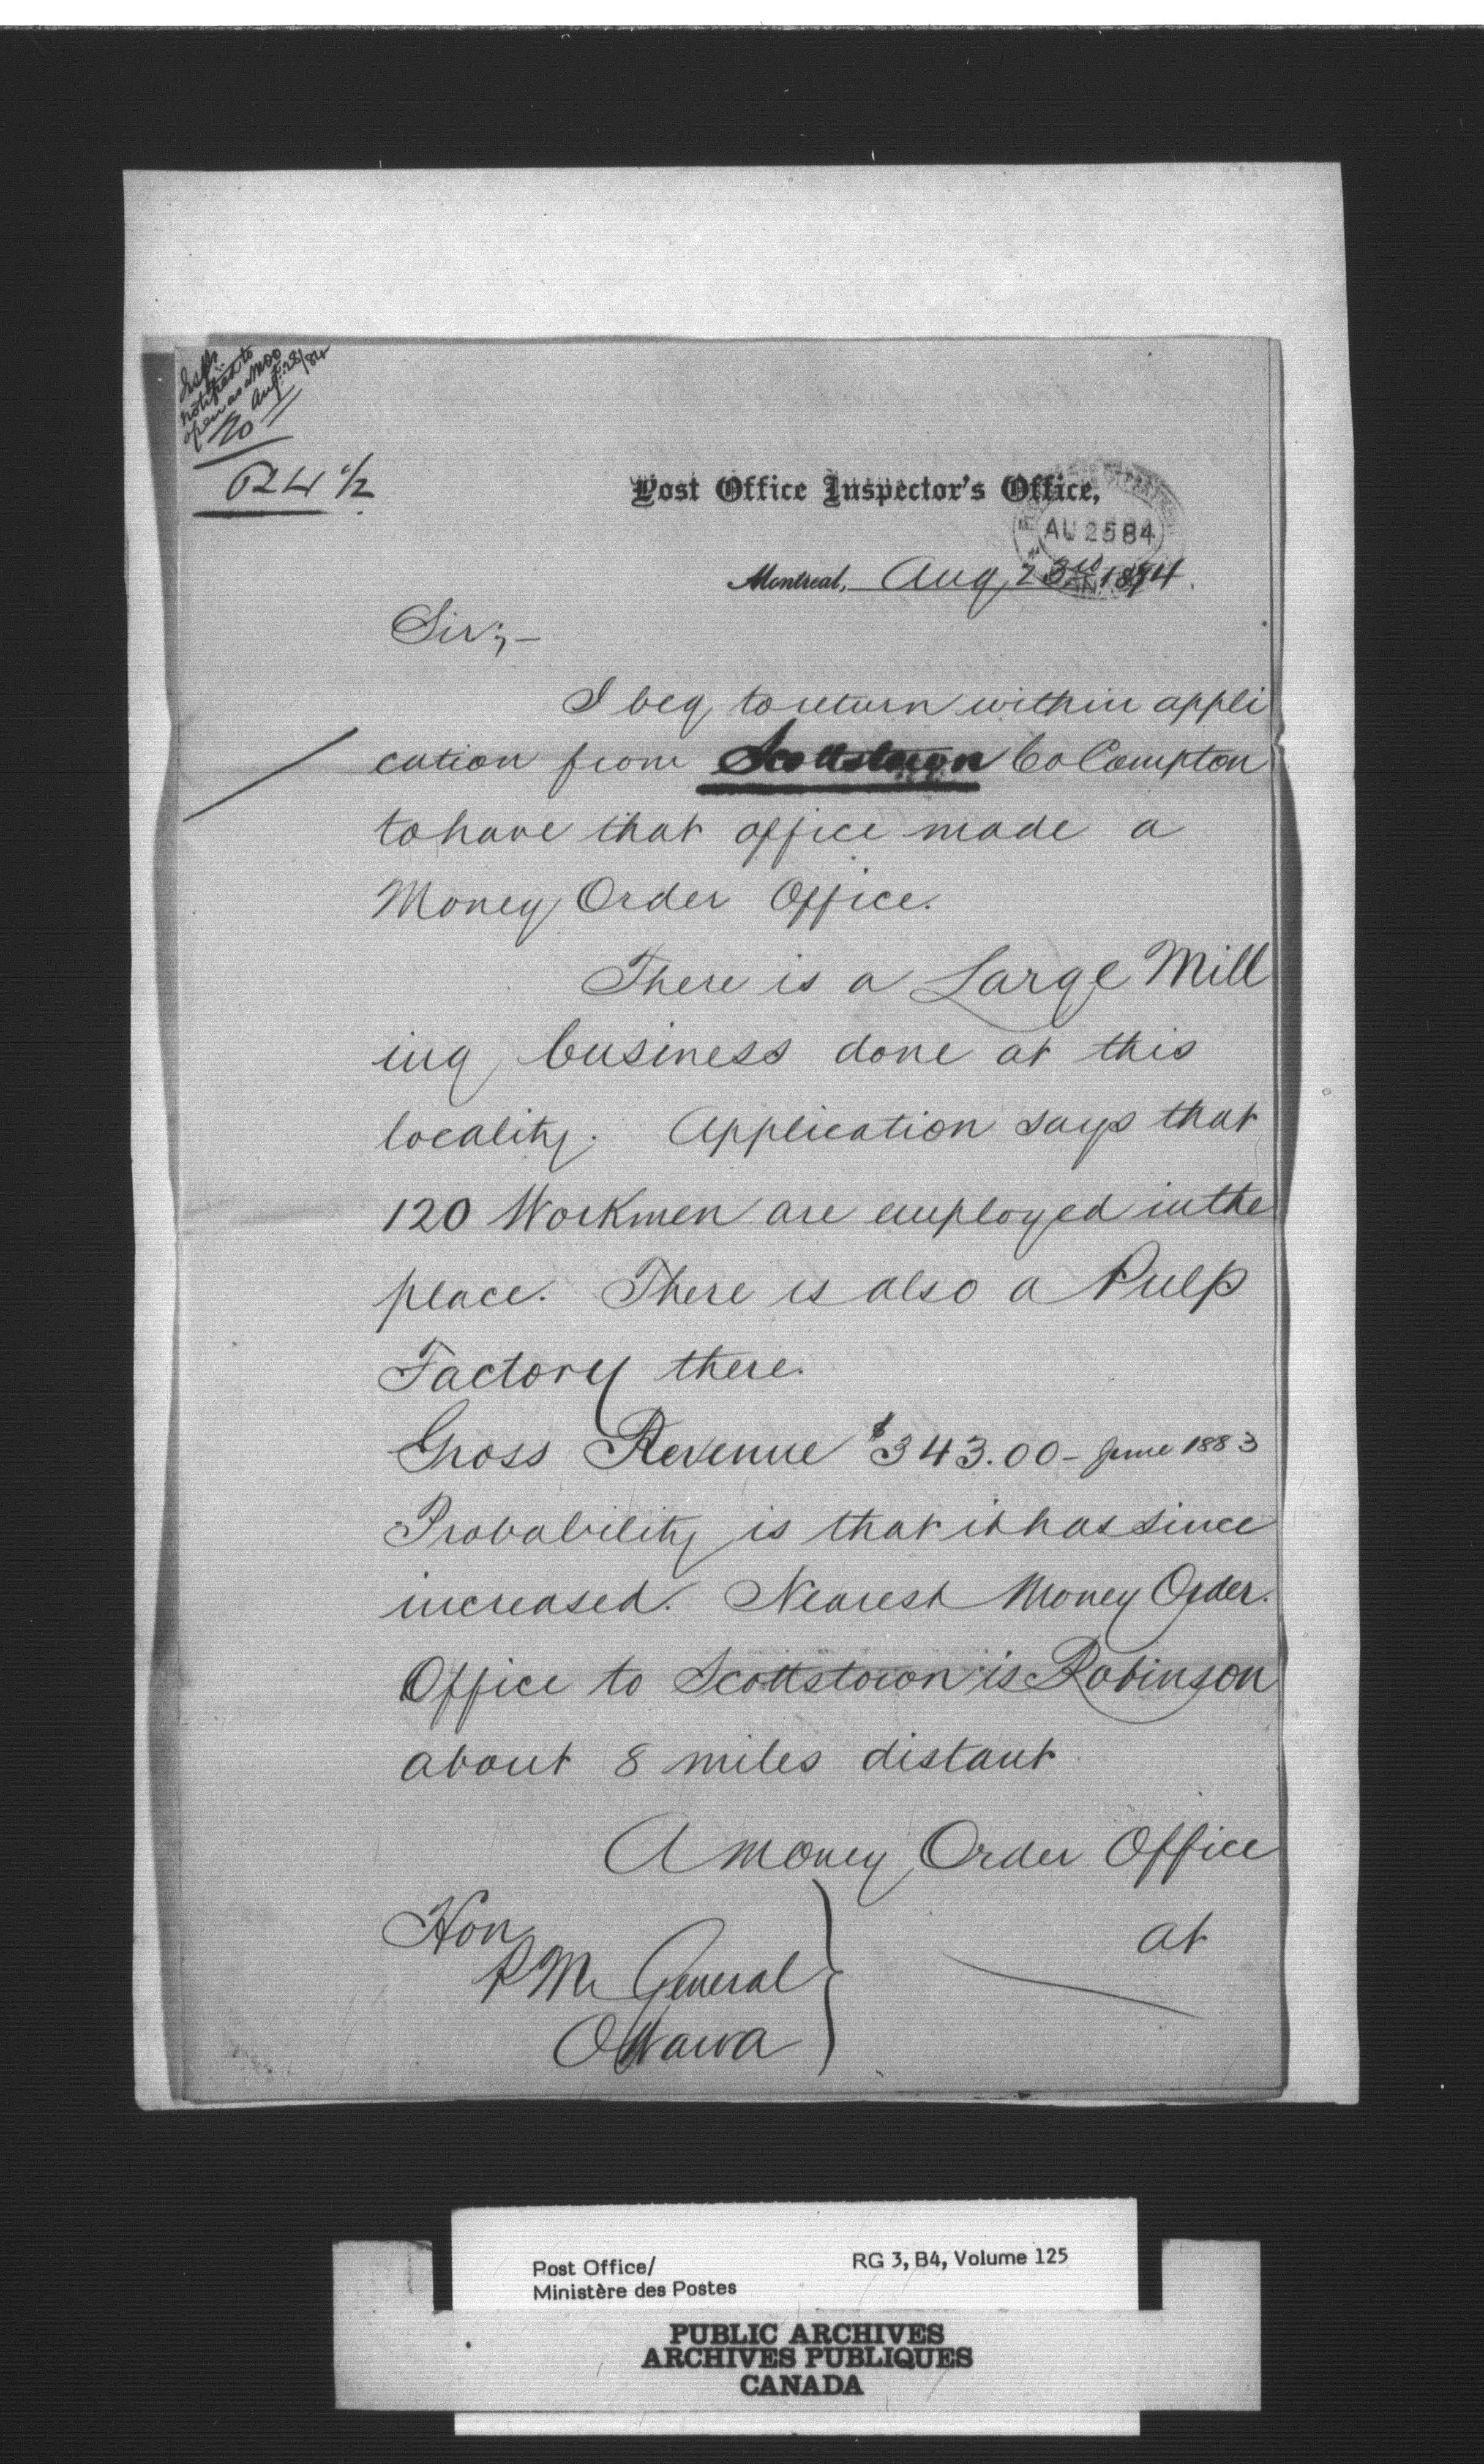 Insptr
notified to
open as a M O O
Aug: 28/84
R 4 ½
Post Office Inspector's Office,
AU 25 84
Montreal, Aug 23rd 1884.
Sir;–
I beg to return within appli
cation from Scottstown Co Compton
to have that office made a
Money Order Office.
There is a Large Mill
ing business done at this
locality. Application says that
120 Workmen are employed in the
place. There is also a Pulp
Factory there.
Gross Revenue $343.00 – June 1883
Probability is that it has since
increased. Nearest Money Order.
Office to Scottstown is Robinson
about 8 miles distant.
A money Order Office
at
Hon
P M General
Ottawa
Post Office/
Ministère des Postes
RG 3, B4, Volume 125
PUBLIC ARCHIVES
ARCHIVES PUBLIQUES
CANADA